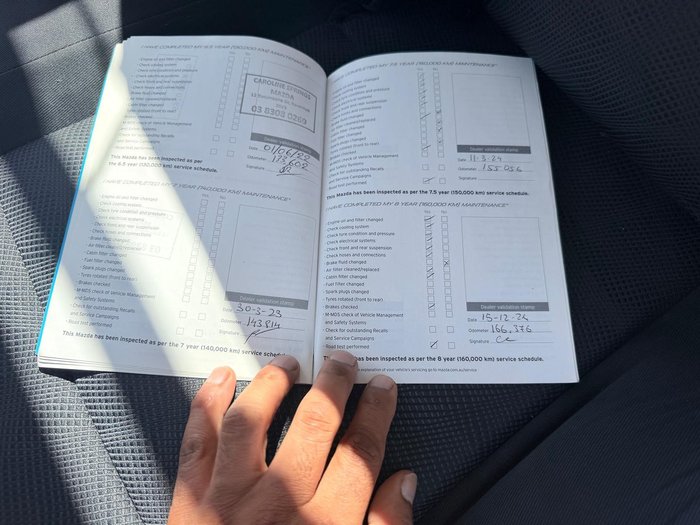 I HAVE COMPLETED MY 6.5 YEAR (130,000 KM) MAINTENANCE*
Yes No
- Engine oil and filter changed
- Check cooling system
- Check tyre condition and pressure
- Check electrical systems
- Check front and rear suspension
- Check hoses and connections
- Brake fluid changed
- Air filter cleaned/replaced
- Cabin filter changed
- Tyres rotated (front to rear)
- Brakes checked
- M-MDS check of Vehicle Management
and Safety Systems
- Check for outstanding Recalls
and Service Campaigns
- Road test performed
CAROLINE SPRINGS
MAZDA
03 8308 0260
Dealer validation stamp
Date 01/06/22
Odometer
Signature
This Mazda has been inspected as per
the 6.5 year (130,000 km) service schedule.
I HAVE COMPLETED MY 7 YEAR (140,000 KM) MAINTENANCE*
- Engine oil and filter changed
- Check cooling system
- Check tyre condition and pressure
- Check electrical systems
- Check front and rear suspension
- Check hoses and connections
- Brake fluid changed
- Air filter cleaned/replaced
- Cabin filter changed
- Fuel filter changed
- Spark plugs changed
- Tyres rotated (front to rear)
- Brakes checked
- M-MDS check of Vehicle Management
and Safety Systems
- Check for outstanding Recalls
and Service Campaigns
- Road test performed
Dealer validation stamp
Date 30-3-23
Odometer 143,814
Signature
This Mazda has been inspected as per the 7 year (140,000 km) service schedule.
I HAVE COMPLETED MY 7.5 YEAR (150,000 KM) MAINTENANCE*
Yes No
Dealer validation stamp
Date 11-3-24
Odometer 155,056
Signature
Road test performed
This Mazda has been inspected as per the 7.5 year (150,000 km) service schedule.
I HAVE COMPLETED MY 8 YEAR (160,000 KM) MAINTENANCE*
Yes No
- Engine oil and filter changed
- Check cooling system
- Check tyre condition and pressure
- Check electrical systems
- Check front and rear suspension
- Check hoses and connections
- Brake fluid changed
- Air filter cleaned/replaced
- Cabin filter changed
- Fuel filter changed
- Spark plugs changed
- Tyres rotated (front to rear)
- Brakes checked
- M-MDS check of Vehicle Management
and Safety Systems
- Check for outstanding Recalls
and Service Campaigns
- Road test performed
Dealer validation stamp
Date 15-12-24
Odometer 166,376
Signature
has been inspected as per the 8 year (160,000 km) service schedule.
explanation of your vehicle's servicing go to mazda.com.au/service